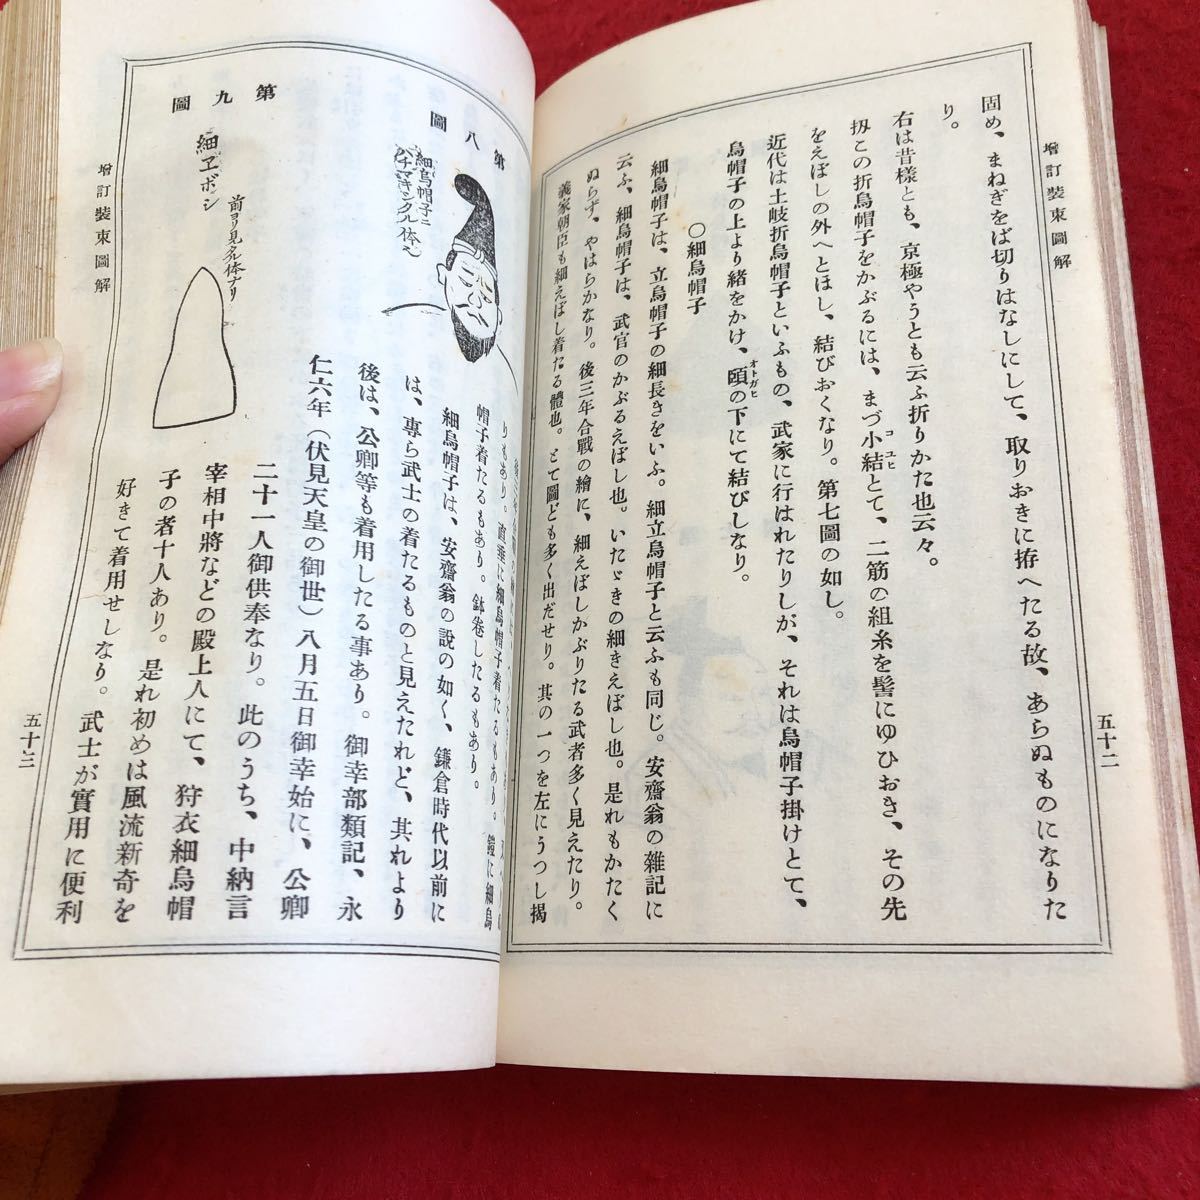 增訂裝束圖解
五十二
固め、まねぎをば切りはなしにして、取りおきに拵へたる故、あらぬものになりた
り。
右は昔樣とも、京極やうとも云ふ折りかた也云々。
扨この折烏帽子をかぶるには、まづ小結とて、二筋の組糸を髻にゆひおき、その先
コユヒ
をえぼしの外へとほし、結びおくなり。第七圖の如し。
近代は土岐折烏帽子といふもの、武家に行はれたりしが、それは烏帽子掛けとて、
烏帽子の上より緖をかけ、頤の下にて結びしなり。
オトガヒ
〇細烏帽子
細烏帽子は、立烏帽子の細長きをいふ。細立烏帽子と云ふも同じ。安齋翁の雜記に
云ふ、細烏帽子は、武官のかぶるえぼし也。いたゞきの細きえぼし也。是れもかたく
ぬらず、やはらかなり。後三年合戰の繪に、細えぼしかぶりたる武者多く見えたり。
義家朝臣も細えぼし着たる體也。とて圖ども多く出だせり。其の一つを左にうつし揭
第八圖
細烏帽子ニ
ハチマキシタル体也
りもあり。直垂に細烏帽子着たるもあり。鎧に細烏
帽子着たるもあり。鉢卷したるもあり。
細烏帽子は、安齋翁の說の如く、鎌倉時代以前に
は、專ら武士の着たるものと見えたれど、其れより
後は、公卿等も着用したる事あり。御幸部類記、永
仁六年（伏見天皇の御世）八月五日御幸始に、公卿
二十一人御供奉なり。此のうち、中納言
宰相中將などの殿上人にて、狩衣細烏帽
子の者十人あり。是れ初めは風流新奇を
好きて着用せしなり。武士が實用に便利
第九圖
細エボシ
前ヨリ見タル体ナリ
增訂裝束圖解
五十三